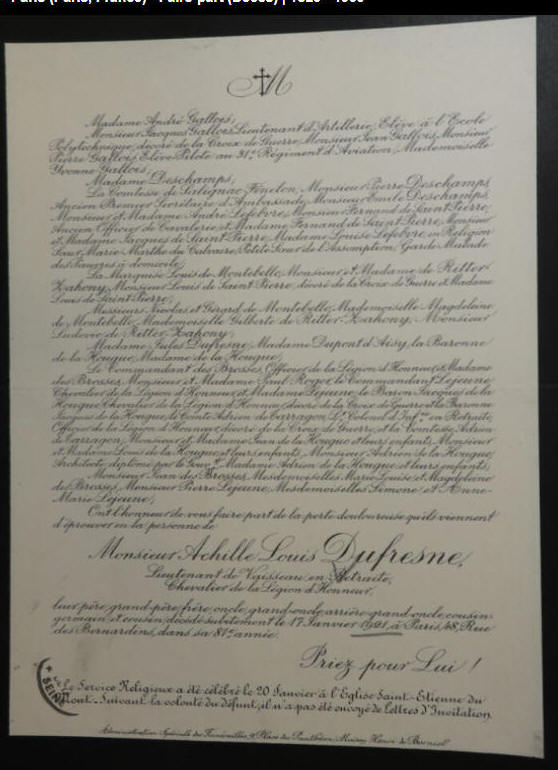 Paris (Paris, France) - Faire part (Décès) | 1820 - 1998
M
Madame André Gallois,
Monsieur Jacques Gallois, Lieutenant d'Artillerie, Elève à l'Ecole
Polytechnique, décoré de la Croix de Guerre, Monsieur Jean Gallois, Monsieur
Pierre Gallois, Elève-Pilote au 31e Régiment d'Aviation, Mademoiselle
Yvonne Gallois,
Madame Deschamps,
La Comtesse de Salignac Fénelon, Monsieur Pierre Deschamps,
Ancien Premier Secrétaire d'Ambassade, Monsieur Emile Deschamps,
Monsieur et Madame André Lefebvre, Monsieur Fernand de Saint Pierre,
Ancien Officier de Cavalerie et Madame Fernand de Saint Pierre, Monsieur
et Madame Jacques de Saint Pierre, Madame Louise Lefebvre, en Religion
Sœur Marie Marthe du Calvaire, Petite Sœur de l'Assomption, Garde Malade
des Pauvres à domicile,
La Marquise Louis de Montebello, Monsieur et Madame de Ritter
Zahony, Monsieur Louis de Saint Pierre, décoré de la Croix de Guerre et Madame
Louis de Saint Pierre,
Messieurs Nicolas et Gérard de Montebello, Mademoiselle Magdelaine
de Montebello, Mademoiselle Gilberte de Ritter-Zahony, Monsieur
Ludovic de Ritter-Zahony,
Madame Jules Dufresne, Madame Dupont d'Aisy, la Baronne
de la Hougue, Madame de la Hougue,
Le Commandant des Brosses, Officier de la Légion d'Honneur, et Madame
des Brosses, Monsieur et Madame Paul Roger, le Commandant Lejeune,
Chevalier de la Légion d'Honneur, et Madame Lejeune, le Baron Jacques de la
Hougue, Chevalier de la Légion d'Honneur, décoré de la Croix de Guerre et la Baronne
Jacques de la Hougue, le Comte Adrien de Tarragon, Lt Colonel d'Inf.ie en Retraite,
Officier de la Légion d'Honneur, décoré de la Croix de Guerre, et la Comtesse Adrien
de Tarragon, Monsieur et Madame Jean de la Hougue et leurs enfants, Monsieur
et Madame Louis de la Hougue et leurs enfants, Monsieur Adrien de la Hougue,
Architecte diplômé par le Gouv.t Madame Adrien de la Hougue, et leurs enfants,
Monsieur Jean des Brosses, Mesdemoiselles Marie Louise et Magdelaine
des Brosses, Monsieur Pierre Lejeune, Mesdemoiselles Simone et Anne-
Marie Lejeune,
Ont l'honneur de vous faire part de la perte douloureuse qu'ils viennent
d'éprouver en la personne de
Monsieur Achille Louis Dufresne,
Lieutenant de Vaisseau en Retraite,
Chevalier de la Légion d'Honneur,
leur père, grand-père, frère, oncle, grand-oncle, arrière-grand-oncle, cousin-
germain et cousin, décédé subitement le 17 Janvier 1921, à Paris, 48, Rue
des Bernardins, dans sa 81e année.
Priez pour Lui !
SEINE
Le Service Religieux a été célébré le 20 Janvier à l'Eglise Saint-Etienne du
Mont. Suivant la volonté du défunt, il n'a pas été envoyé de Lettres d'Invitation.
Administration Spéciale des Funérailles, Place du Panthéon, Maison Henri de Borniol